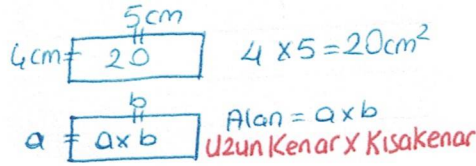 5cm
4cm 20 4 x 5 = 20cm²
b
a axb Alan = axb
Uzun Kenar x Kısakenar